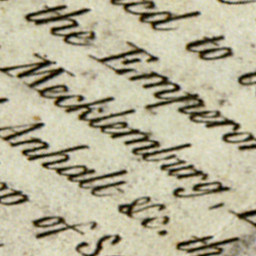 to
the Emperor
Mecklemburg,
Anhalt &c. th
of S